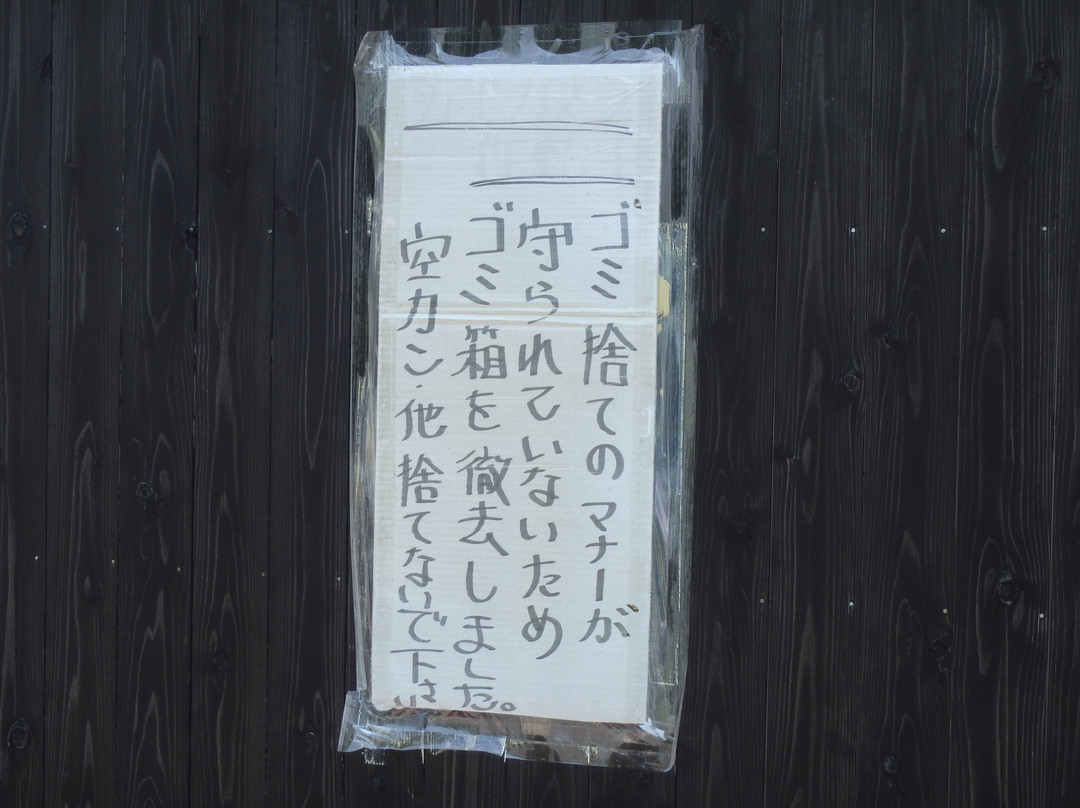 ゴミ捨てのマナーが
守られていないため
ゴミ箱を徹去しました。
空カン・他捨てないで下さい